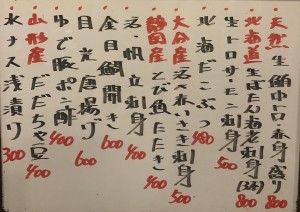 天然生鮪中トロ刺身盛り 800
北海道生ぼたん海老刺身(3本) 800
生トロサーモン刺身 500
北海だこぶつ 480
大分産活〆いさき刺身 500
静岡産とび魚たたき 400
活・帆立刺身 400
金目鯛開き 600
目光唐揚げ 600
ゆで豚ポン酢 400
山形産だだちゃ豆 400
水ナス浅漬り 300